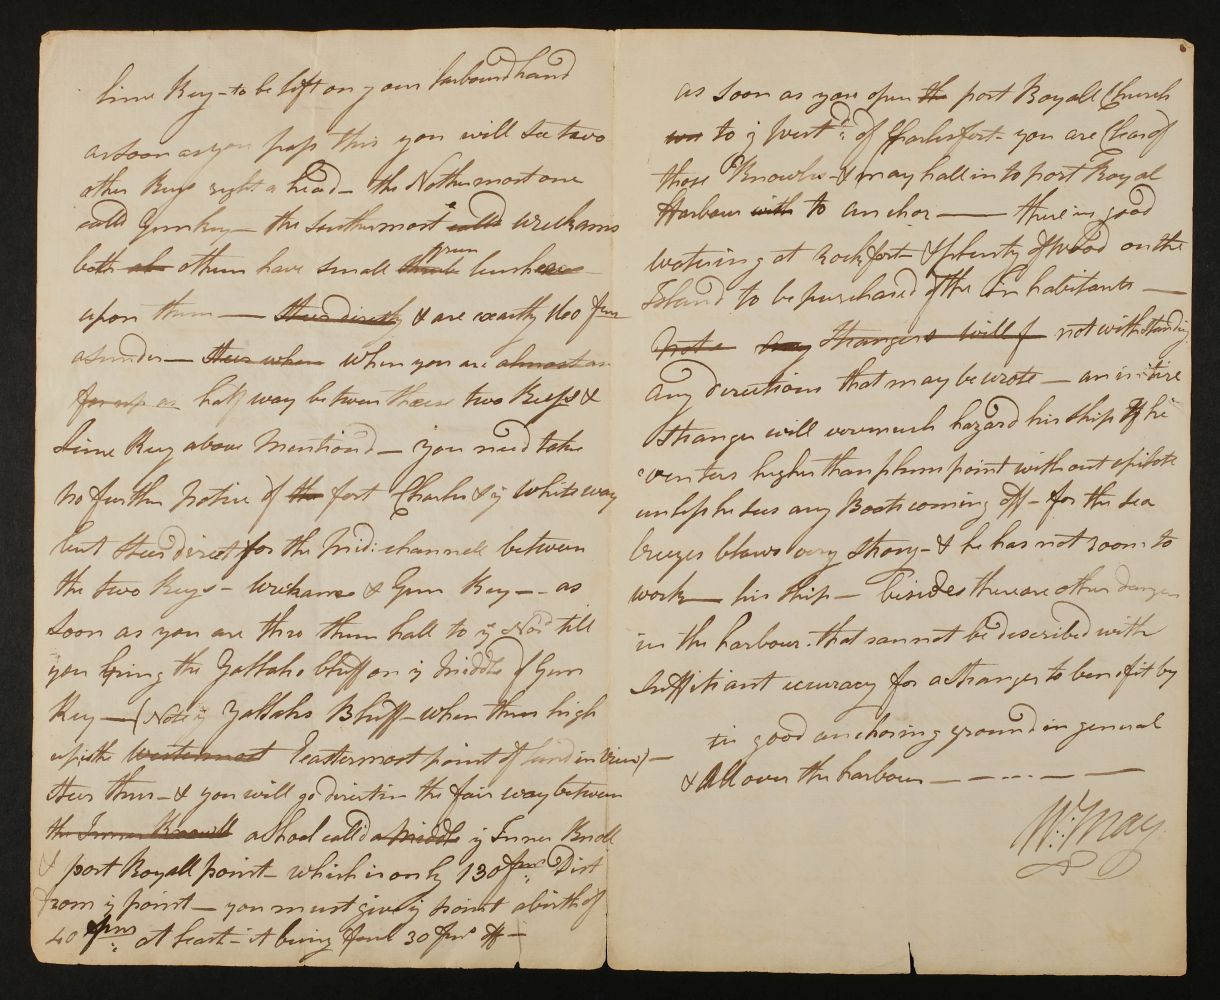 lime Key - to be left on your larboard hand
as soon as you pass this you will see two
other Keys right a head - the Nothermost one
calld Gun key - the Southermost calld wreckams
both othem have small green bushes
upon them — Steer directly & are exactly 1100 fms
asunder — Steer when when you are almost as
far up as half way between these two Keys &
Lime Key above Mentiond - you need take
no further Notice of the fort Charles & ye white way
but Steer direct for the Mid:channele between
the two Keys - wrekams & Gun Key - as
Soon as you are thro them hall to ye Nord till
you bring the Yallahs bluff on ye Middle of Gun
Key — (Note ye Yallahs Bluff - when thus high
up is the Westermost Eastermost point of land in View) —
Steer thus - & you will go direct in the fair way between
the Inner Knowll a Shoal calld a Middle ye Inner Knoll
& port Royall point - which is only 130 fms Dist
from ye point - you must give ye point a birth of
40 fms at least - it being foul 30 fms off -
as soon as you open the port Royall Church
to ye Westd: of Charlesfort - you are Clear of
those Knowls - & may hall in to port Royal
Harbour with to anchor — there is good
watering at Rock fort & plenty of Wood on the
Island to be purchased of the Inhabitants —
Note any Strangers will f notwithstanding
any directions that may be wrote — an intire
Stranger will verrmuch hazard his Ship If he
venters higher than plum point without a pilote
unless he sees any Boats coming off - for the Sea
breezes blows very Strong - & he has not room to
work — his Ship — besides there are other dangers
in the harbour. that cannot be described with
Suffitiant accuracy for a Stranger to benefit by
tis good anchoring ground in general
& All over the harbour — — — — — —
Wm: May